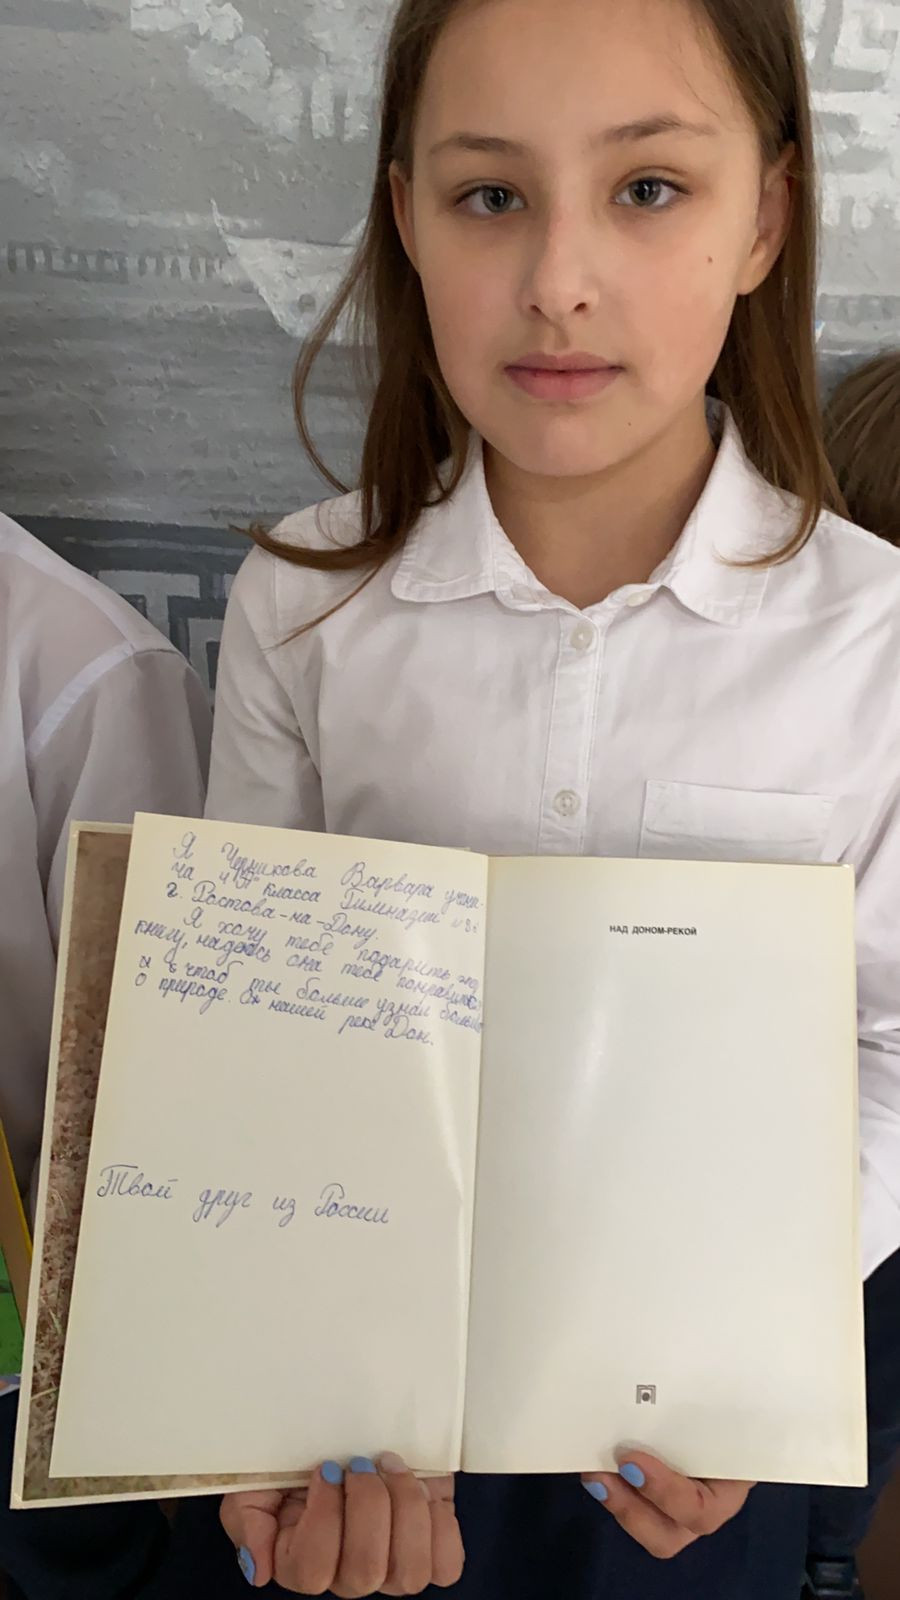 Я Черникова Варвара учени-
ца 4 "А" класса Гимназии №
г. Ростова-на-Дону.
Я хочу тебе подарить эту
книгу, надеюсь она тебе понравится
и чтоб ты больше узнал больше
о природе. О нашей реке Дон.
Твой друг из России
НАД ДОНОМ-РЕКОЙ